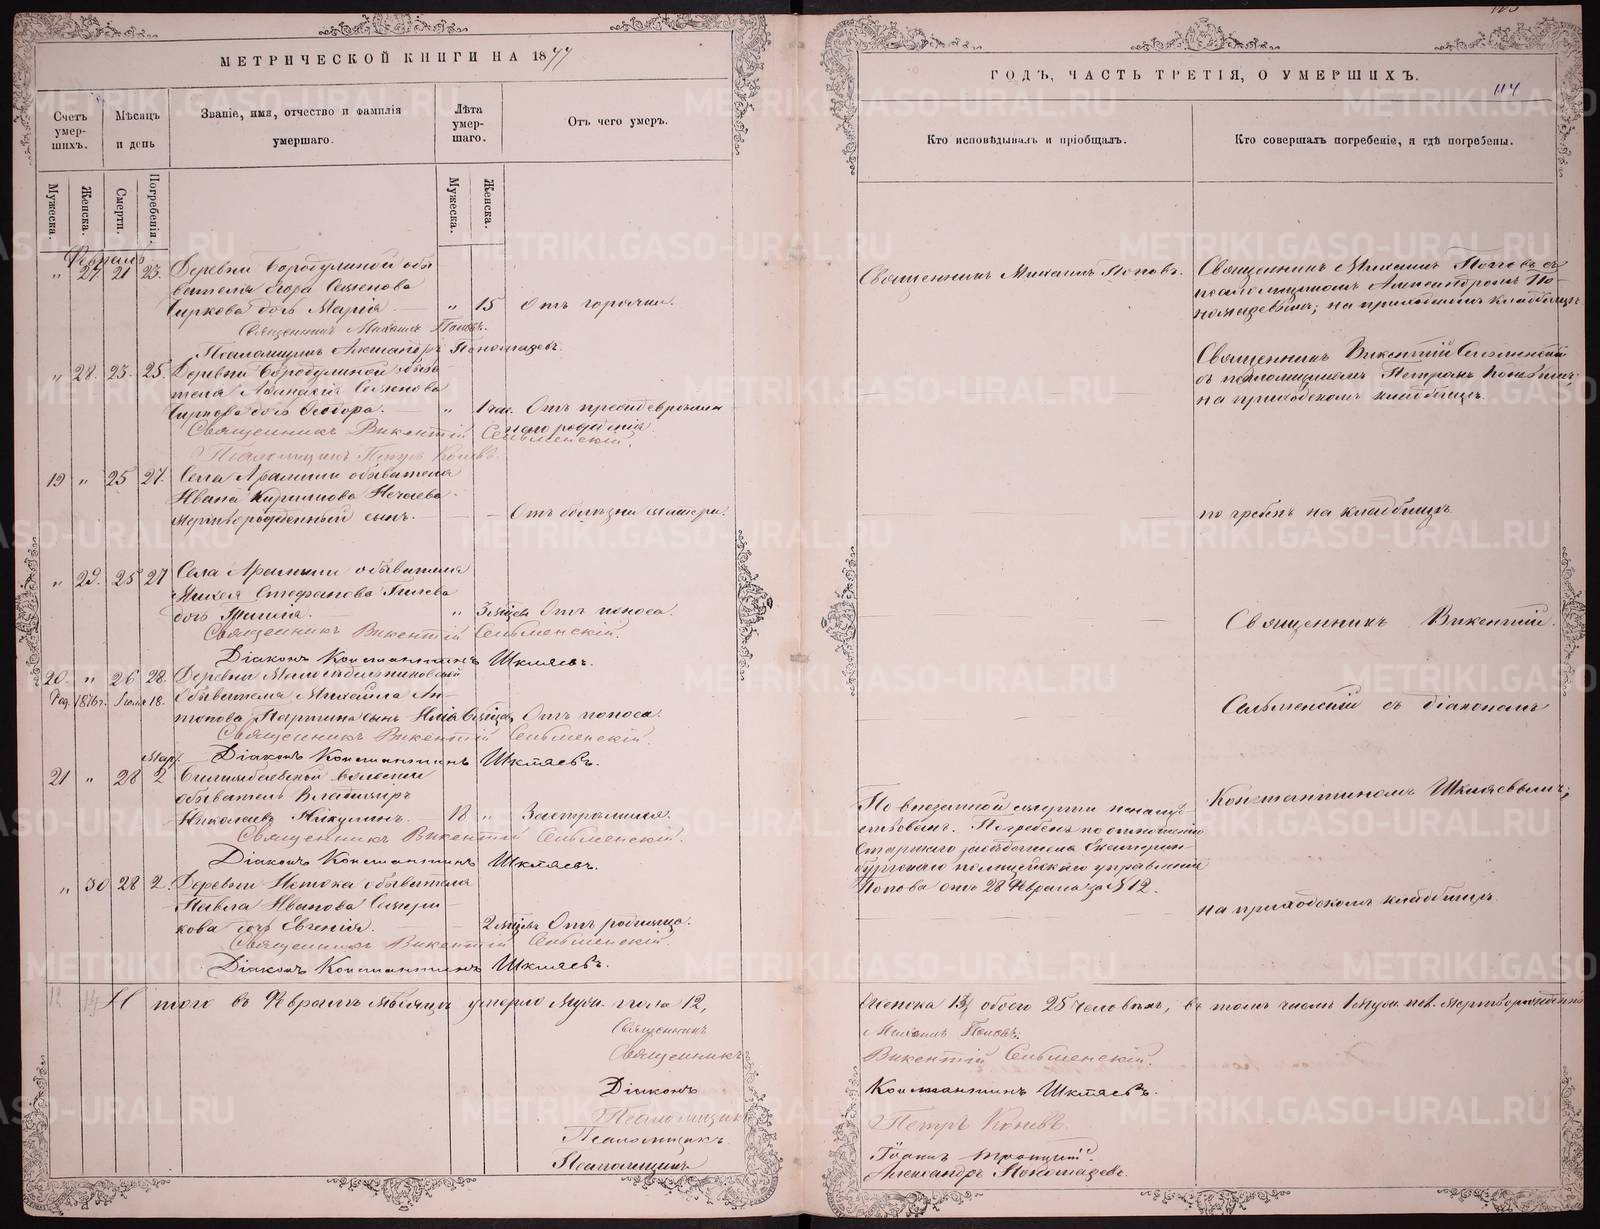 МЕТРИЧЕСКОЙ КНИГИ НА 1877
Счетъ умер-шихъ.
Мѣсяцъ и день
Званіе, имя, отчество и фамилія умершаго.
Лѣта умер-шаго.
Отъ чего умеръ.
Мужеска.
Женска.
Смерти.
Погребенія.
Мужеска.
Женска.
Февраль
" 27 21 23. Деревни Бородулиной обы
вателя Егора Семенова
Чиркова дочь Марія " 15 Отъ горячки.
Священникъ Михаилъ Поповъ.
Псаломщикъ Александръ Пономаревъ.
" 28. 23. 25. Деревни Бородулиной обыва
теля Афанасія Семенова
Чиркова дочь Ѳеодора. " 1 час. Отъ преждевремен
наго рожденія.
Священникъ Викентій Сельменскій.
Псаломщикъ Петръ Коневъ.
19 " 25 27. Села Арамили обывателя
Ивана Кириллова Нечаева
мертворожденный сынъ. Отъ болѣзни матери.
" 29. 25 27 Села Арамили обывателя
Михея Стефанова Гилева
дочь " 3 мѣсяц. Отъ поноса.
Священникъ Викентій Сельменскій.
Діаконъ Константинъ Шкляевъ.
20 " 26 28. Деревни
Род. 1876 г. Іюля 18. Обывателя Михаила Ан-
типова сынъ Илія 6 мѣсяц. Отъ поноса.
Священникъ Викентій Сельменскій.
Діаконъ Константинъ Шкляевъ.
Мар.
21 " 28 2 Билимбаевской волости
обыватель Владиміръ
Николаевъ Никулинъ. 18 " Застрѣлился.
Священникъ Викентій Сельменскій.
Діаконъ Константинъ Шкляевъ.
" 30 28 2. Деревни Истока обывателя
Павла Иванова
кова дочь Евгенія. 2 мѣсяц. Отъ родимца.
Священникъ Викентій Сельменскій.
Діаконъ Константинъ Шкляевъ.
Итого въ Февралѣ мѣсяцѣ умерло Муж. пола 12,
Священникъ
Священникъ
Діаконъ
Псаломщикъ
Псаломщикъ
Псаломщикъ
ГОДЪ, ЧАСТЬ ТРЕТІЯ, О УМЕРШИХЪ.
114
Кто исповѣдывалъ и пріобщалъ.
Кто совершалъ погребеніе, и гдѣ погребены.
Священникъ Михаилъ Поповъ.
Священникъ Михаилъ Поповъ съ
псаломщикомъ Александромъ По-
номаревымъ; на приходскомъ кладбищѣ
Священникъ Викентій Сельменскій
съ псаломщикомъ Петромъ Коневымъ;
на приходскомъ кладбищѣ.
погребенъ на кладбищѣ
Священникъ Викентій
Сельменскій съ діакономъ
Константиномъ Шкляевымъ;
на приходскомъ кладбищѣ.
По внезапной смерти не напут
ствованъ. Погребенъ по отношенію
Старшаго засѣдателя Екатерин
бургскаго полицейскаго управленія
Попова отъ 28 Февраля за № 12.
Женска 13, обоего 25 человѣкъ, въ томъ числѣ 1 муж. пол. мертворожденный
Михаилъ Поповъ.
Викентій Сельменскій.
Константинъ Шкляевъ.
Петръ Коневъ
Іоаннъ Троицкій.
Александръ Пономаревъ.
METRIKI.GASO-URAL.RU